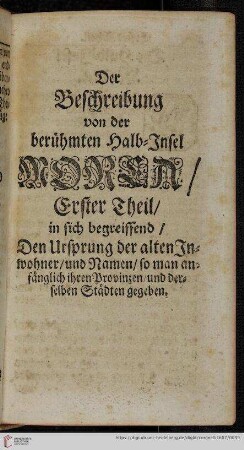 Der
Beschreibung
von der
berühmten Halb-Insel
MOREA/
Erster Theil/
in sich begreiffend/
Den Ursprung der alten In-
wohner/und Namen/so man an-
fänglich ihren Provinzen/und der-
selben Städten gegeben.